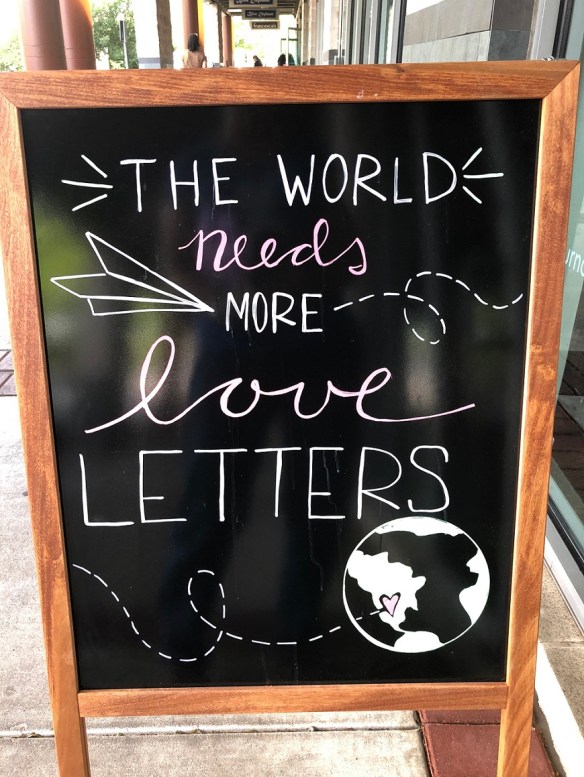 THE WORLD
needs
MORE
love
LETTERS